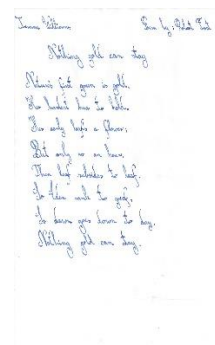 Poem by: Robert Frost
Nothing gold can stay
Nature's first green is gold,
Her hardest hue to hold.
Her early leaf's a flower;
But only so an hour.
Then leaf subsides to leaf.
So Eden sank to grief,
So dawn goes down to day.
Nothing gold can stay.